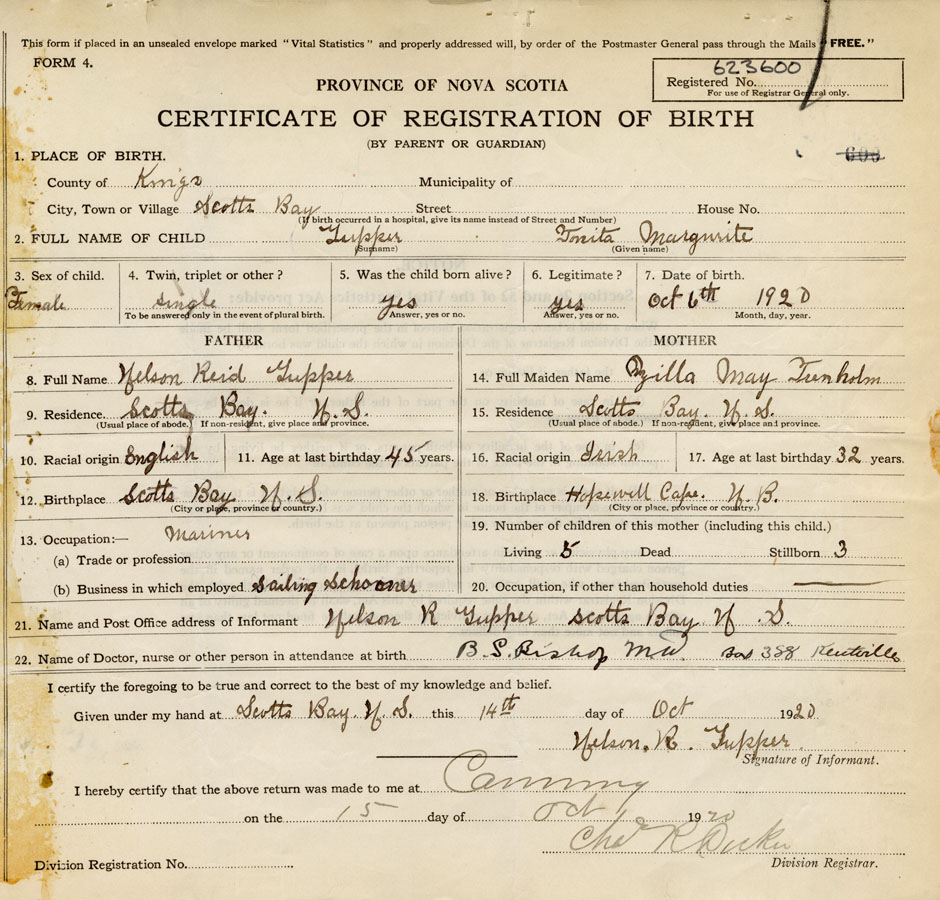 This form if placed in an unsealed envelope marked "Vital Statistics" and properly addressed will, by order of the Postmaster General pass through the Mails "FREE."
FORM 4.
623600
Registered No.
For use of Registrar General only.
PROVINCE OF NOVA SCOTIA
CERTIFICATE OF REGISTRATION OF BIRTH
(BY PARENT OR GUARDIAN)
1. PLACE OF BIRTH.
County of Kings Municipality of
City, Town or Village Scotts Bay Street House No.
(If birth occurred in a hospital, give its name instead of Street and Number)
2. FULL NAME OF CHILD Tupper Tonita Margurite
(Surname) (Given name)
3. Sex of child. 4. Twin, triplet or other? 5. Was the child born alive? 6. Legitimate? 7. Date of birth.
Female single yes yes Oct 6th 1920
To be answered only in the event of plural birth. Answer, yes or no. Answer, yes or no. Month, day, year.
FATHER
8. Full Name Nelson Reid Tupper
9. Residence Scotts Bay. N. S.
(Usual place of abode.) If non-resident, give place and province.
10. Racial origin English 11. Age at last birthday 45 years.
12. Birthplace Scotts Bay N. S.
(City or place, province or country.)
13. Occupation:— Mariner
(a) Trade or profession
(b) Business in which employed Sailing Schooner
MOTHER
14. Full Maiden Name Zilla May
15. Residence Scotts Bay. N. S.
(Usual place of abode.) If non-resident, give place and province.
16. Racial origin Irish 17. Age at last birthday 32 years.
18. Birthplace Hopewell Cape. N. B.
(City or place, province or country.)
19. Number of children of this mother (including this child.)
Living 5 Dead Stillborn 3
20. Occupation, if other than household duties
21. Name and Post Office address of Informant Nelson R Tupper Scotts Bay N. S.
22. Name of Doctor, nurse or other person in attendance at birth B. S. Bishop M.D. Box 388 Kentville
I certify the foregoing to be true and correct to the best of my knowledge and belief.
Given under my hand at Scotts Bay. N. S. this 14th day of Oct 1920
Nelson. R. Tupper
Signature of Informant.
I hereby certify that the above return was made to me at Canning
on the 15 day of Oct 1920
Chas R
Division Registration No. Division Registrar.